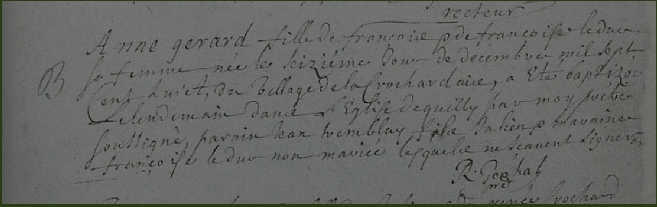 recteur
Anne gerard fille de francoise & de francoise leduc
B sa femme née le seizième Jour de decembre mil sept
Cent huict, du Village de la Crochardaie, a Eté baptizée
Le lendemain dans L'Eglise de quilly par moy prêtre
soussigné, parain Jean tremblay maraine
françoise leduc non mariée lesquelle ne scavent signer
R.
Crochard